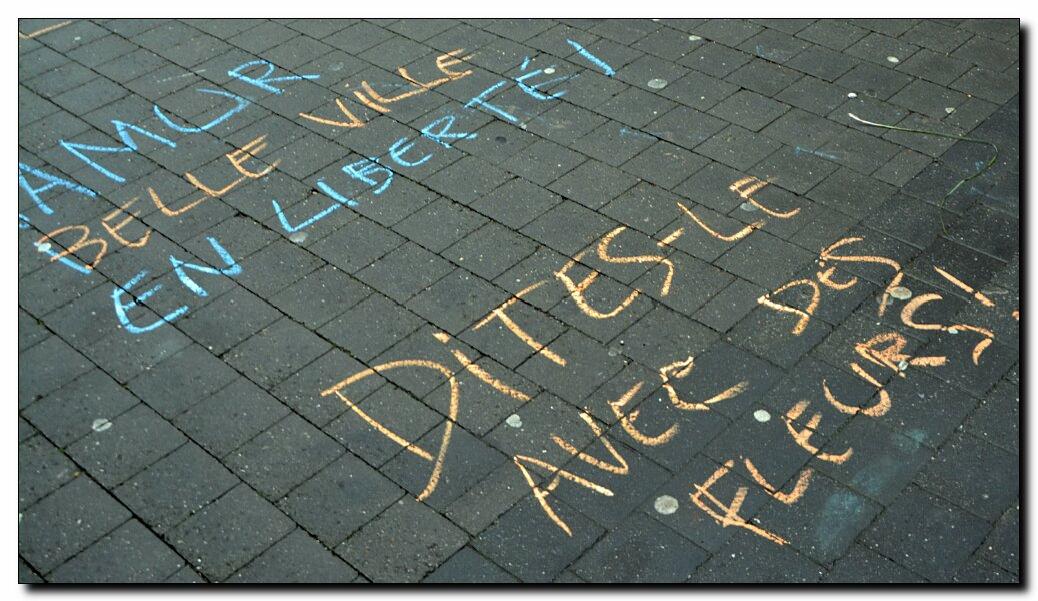 AMUR
BELLE VILLE
EN LIBERTÉ !
DITES-LE
AVEC DES
FLEURS !